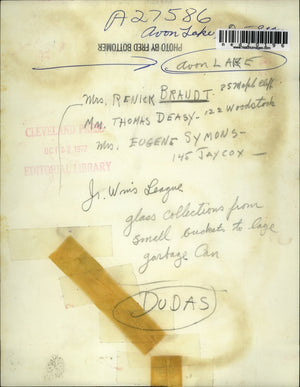 A27586
Avon Lake
PHOTO BY FRED BOTTOMER
Avon LAKE
Mrs. RENICK BRAUDT. 85 Moph Cliff
Mrs. THOMAS DEASY - 122 Woodstock
Mrs. EUGENE SYMONS -
145 JAYCOX
CLEVELAND PRESS
OCT 1977
EDITORIAL LIBRARY
Jr. Wms League
glass collections from
small buckets to large
garbage can
DUDAS